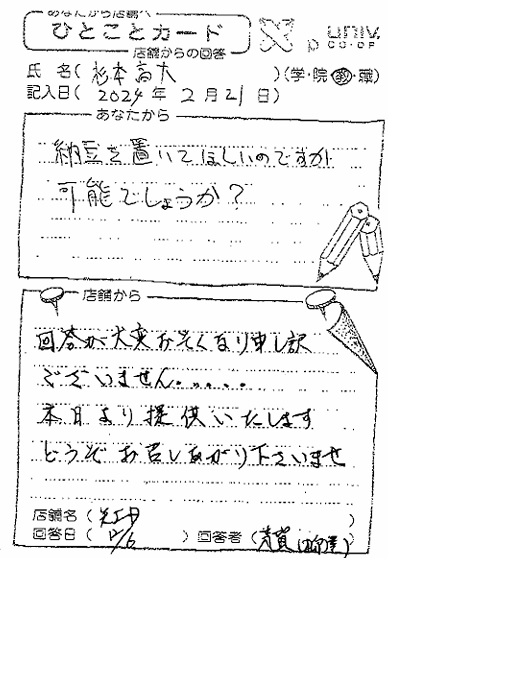 あなたから店舗へ
ひとことカード
店舗からの回答
univ.
CO-OP
氏 名( 杉本高大 )(学・院・教・職)
記入日( 2024 年 2 月 21 日)
あなたから
納豆を置いてほしいのですが
可能でしょうか?
店舗から
回答が大変おそくなり申し訳
ございません.....
本日より提供いたします
どうぞお召しあがり下さいませ
店舗名( )
回答日( 12/6 ) 回答者( )